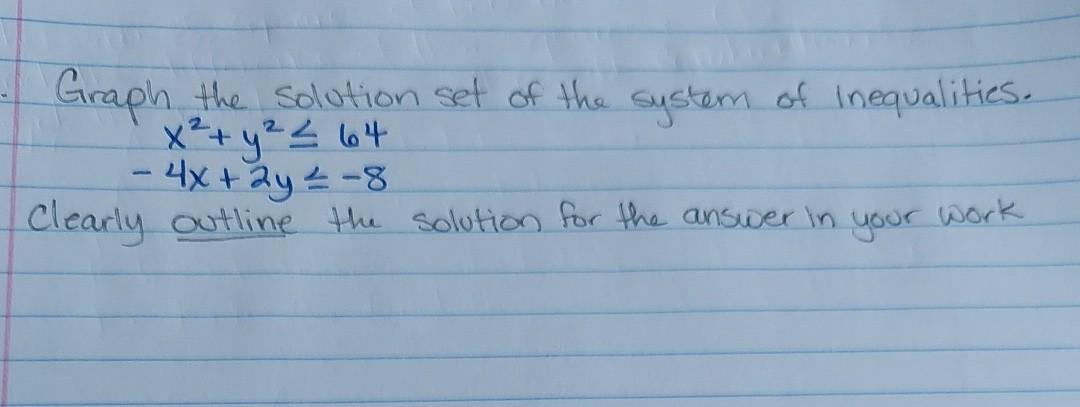 Graph the solution set of the system of inequalities.
x² + y² ≤ 64
- 4x + 2y ≤ -8
Clearly outline the solution for the answer in your work